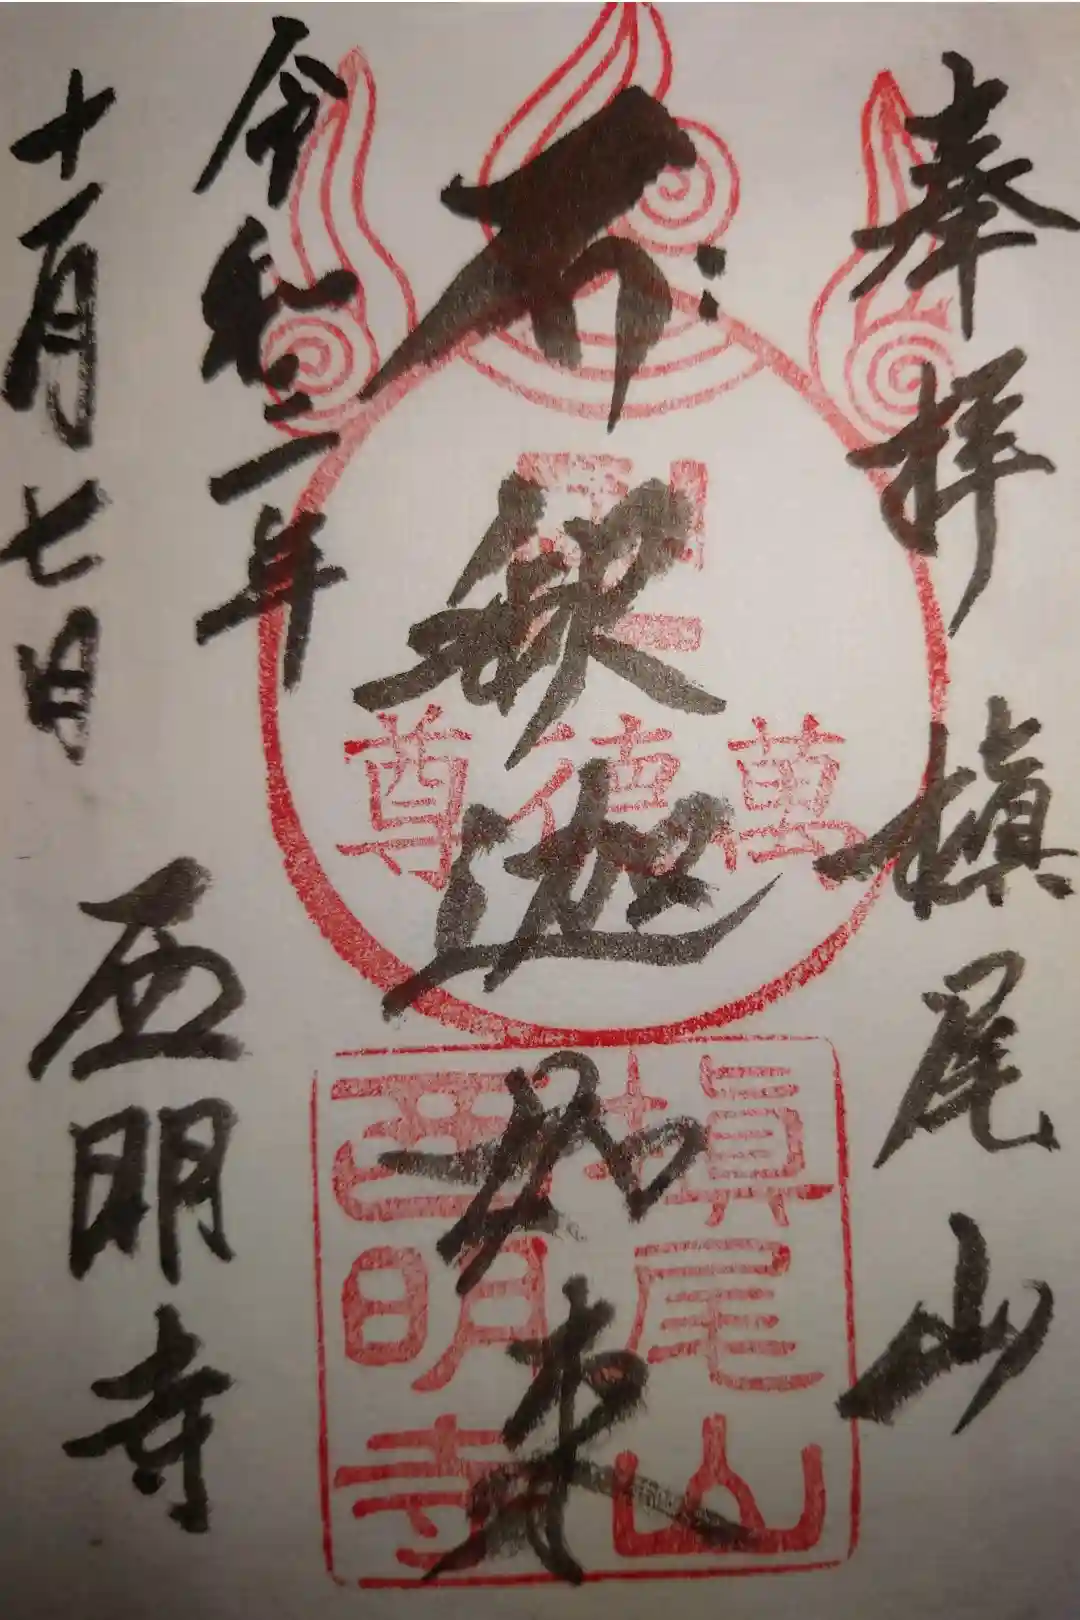 奉拝 槇尾山
釈迦如来
令和三年
十月七日 西明寺
萬徳尊
槇尾山
西明寺